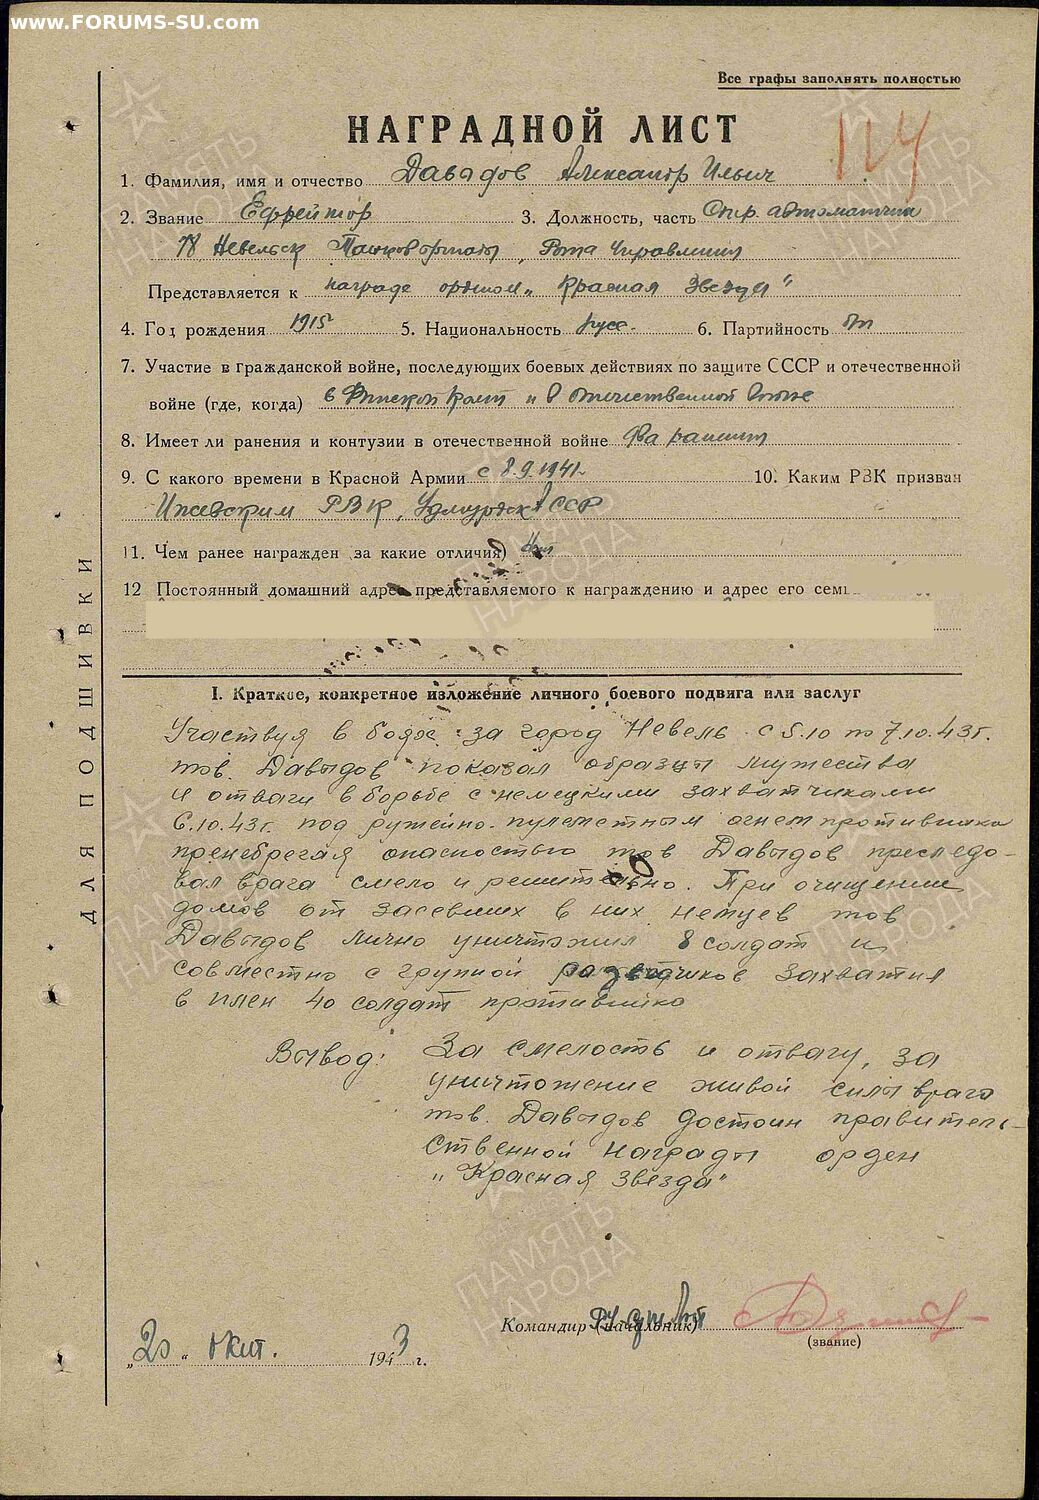 www.FORUMS-SU.com
Все графы заполнять полностью
НАГРАДНОЙ ЛИСТ
114
1. Фамилия, имя и отчество Давыдов Александр Ильич
2. Звание Ефрейтор 3. Должность, часть автоматчик
78 Невельск Рота Управления
Представляется к награде орденом „Красная Звезда"
4. Год рождения 1915 5. Национальность русс. 6. Партийность
7. Участие в гражданской войне, последующих боевых действиях по защите СССР и отечественной
войне (где, когда) в Финской и в Отечественной войне
8. Имеет ли ранения и контузии в отечественной войне два ранения
9. С какого времени в Красной Армии с 8.9.1941г 10. Каким РВК призван
Ижевским РВК, Удмуртск АССР
11. Чем ранее награжден за какие отличия) нет
12 Постоянный домашний адрес представляемого к награждению и адрес его сем
ДЛЯ ПОДШИВКИ
I. Краткое, конкретное изложение личного боевого подвига или заслуг
Участвуя в боях за город Невель с 5.10 по 7.10.43г.
тов. Давыдов показал образцы мужества
и отваги в борьбе с немецкими захватчиками
6.10.43г. под ружейно-пулеметным огнем противника
пренебрегая опасностью тов Давыдов преследо-
вал врага смело и решительно. При очищении
домов от засевших в них немцев тов
Давыдов лично уничтожил 8 солдат и
совместно с группой разведчиков захватил
в плен 40 солдат противника
Вывод: За смелость и отвагу, за
уничтожение живой силы врага
тов. Давыдов достоин правитель-
ственной награды орден
„Красная звезда"
Командир (начальник)
(звание)
„20" окт. 1943 г.
ПАМЯТЬ НАРОДА